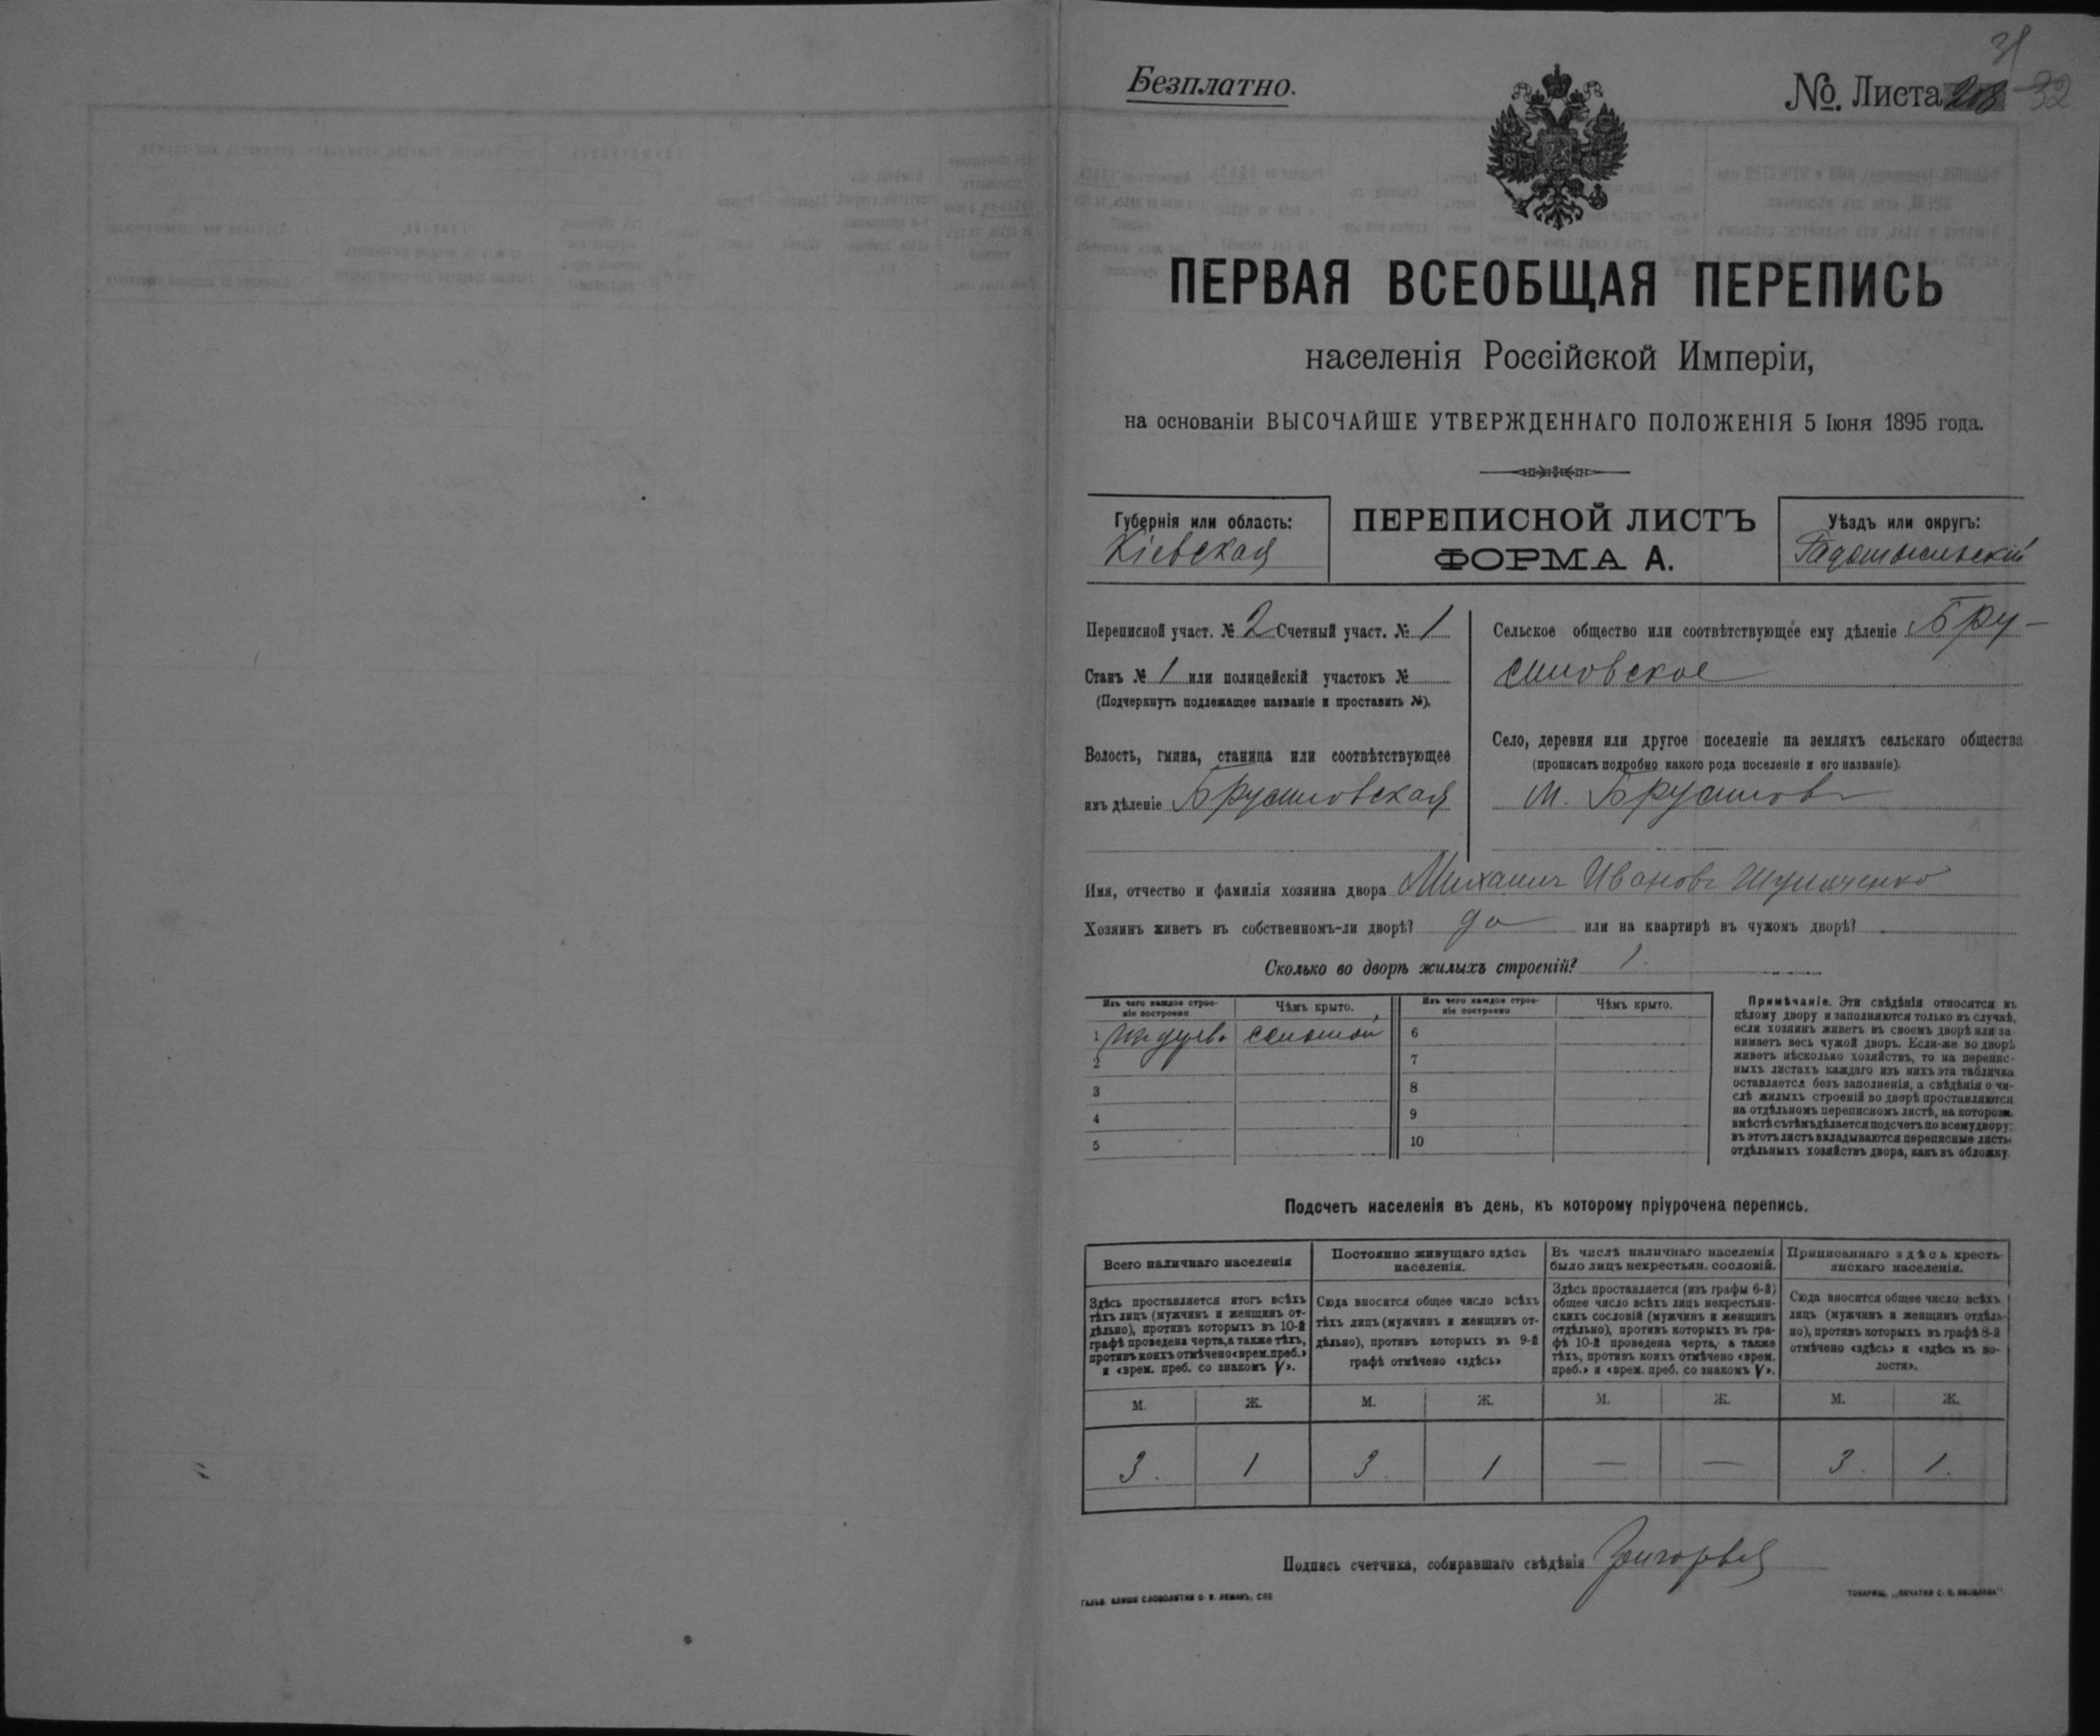 Безплатно.
№. Листа 208 32
31
ПЕРВАЯ ВСЕОБЩАЯ ПЕРЕПИСЬ
населенія Россійской Имперіи,
на основаніи ВЫСОЧАЙШЕ УТВЕРЖДЕННАГО ПОЛОЖЕНІЯ 5 Іюня 1895 года.
Губернія или область:
Кіевская
ПЕРЕПИСНОЙ ЛИСТЪ
ФОРМА А.
Уѣздъ или округъ:
Радомысльскій
Переписной участ. № 2 Счетный участ. № 1
Станъ № 1 или полицейскій участокъ №
(Подчеркнуть подлежащее названіе и проставить №).
Волость, гмина, станица или соотвѣтствующее
имъ дѣленіе Брусиловская
Сельское общество или соотвѣтствующее ему дѣленіе Бру-
силовское
Село, деревня или другое поселеніе на земляхъ сельскаго общества
(прописать подробно какого рода поселеніе и его названіе).
м. Брусиловъ
Имя, отчество и фамилія хозяина двора Михаилъ Ивановъ
Хозяинъ живетъ въ собственномъ-ли дворѣ? да или на квартирѣ въ чужомъ дворѣ?
Сколько во дворѣ жилыхъ строеній? 1
Изъ чего каждое строе-
ніе построено
Чѣмъ крыто.
Изъ чего каждое строе-
ніе построено
Чѣмъ крыто.
1 изъ дерева соломой
2
3
4
5
6
7
8
9
10
Примѣчаніе. Эти свѣдѣнія относятся къ
цѣлому двору и заполняются только въ случаѣ,
если хозяинъ живетъ въ своемъ дворѣ или за-
нимаетъ весь чужой дворъ. Если-же во дворѣ
живетъ нѣсколько хозяйствъ, то на перепис-
ныхъ листахъ каждаго изъ нихъ эта табличка
оставляется безъ заполненія, а свѣдѣнія о чи-
слѣ жилыхъ строеній во дворѣ проставляются
на отдѣльномъ переписномъ листѣ, на которомъ
вмѣстѣ съ тѣмъ дѣлается подсчетъ по всему двору:
въ этотъ листъ вкладываются переписные листы
отдѣльныхъ хозяйствъ двора, какъ въ обложку.
Подсчетъ населенія въ день, къ которому пріурочена перепись.
Всего наличнаго населенія
Здѣсь проставляется итогъ всѣхъ
тѣхъ лицъ (мужчинъ и женщинъ от-
дѣльно), противъ которыхъ въ 10-й
графѣ проведена черта, а также тѣхъ,
противъ коихъ отмѣчено «врем. преб.»
и «врем. преб. со знакомъ V».
Постоянно живущаго здѣсь
населенія.
Сюда вносится общее число всѣхъ
тѣхъ лицъ (мужчинъ и женщинъ от-
дѣльно), противъ которыхъ въ 9-й
графѣ отмѣчено «здѣсь»
Въ числѣ наличнаго населенія
было лицъ некрестьян. сословій.
Здѣсь проставляется (изъ графы 6-й)
общее число всѣхъ лицъ некрестьян-
скихъ сословій (мужчинъ и женщинъ
отдѣльно), противъ которыхъ въ гра-
фѣ 10-й проведена черта, а также
тѣхъ, противъ коихъ отмѣчено «врем.
преб.» и «врем. преб. со знакомъ V».
Приписаннаго здѣсь кресть-
янскаго населенія.
Сюда вносится общее число всѣхъ
лицъ (мужчинъ и женщинъ отдѣль-
но), противъ которыхъ въ графѣ 8-й
отмѣчено «здѣсь» и «здѣсь къ во-
лости».
М. Ж. М. Ж. М. Ж. М. Ж.
3. 1 3. 1 — — 3. 1.
Подпись счетчика, собиравшаго свѣдѣнія
ГАЛЬВ. КЛИШЕ СЛОВОЛИТНИ О. И. ЛЕМАНЪ, СПБ
ТОВАРИЩ. „ПЕЧАТНЯ С. П. ЯКОВЛЕВА“